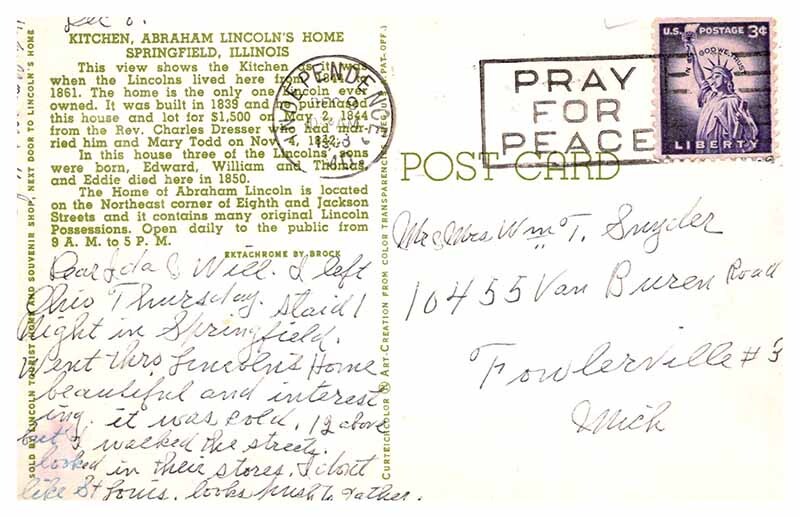 Dec 8.
KITCHEN, ABRAHAM LINCOLN'S HOME
SPRINGFIELD, ILLINOIS
This view shows the Kitchen as it was
when the Lincolns lived here from 1844 to
1861. The home is the only one Lincoln ever
owned. It was built in 1839 and he purchased
this house and lot for $1,500 on May 2, 1844
from the Rev. Charles Dresser who had mar-
ried him and Mary Todd on Nov. 4, 1842.
In this house three of the Lincolns' sons
were born, Edward, William and Thomas,
and Eddie died here in 1850.
The Home of Abraham Lincoln is located
on the Northeast corner of Eighth and Jackson
Streets and it contains many original Lincoln
Possessions. Open daily to the public from
9 A. M. to 5 P. M.
EKTACHROME BY BROCK
Dear Ida & Will. I left
Ohio Thursday. Staid 1
Night in Springfield.
Went thro Lincoln's Home
beautiful and interest
ing. it was cold. 12 above
but I walked the street.
looked in their stores. I don't
like St Louis. looks
rather.
SOLD BY LINCOLN TOURIST HOME AND SOUVENIR SHOP, NEXT DOOR TO LINCOLN'S HOME
CURTEICHCOLOR ® ART-CREATION FROM COLOR TRANSPARENCIES (REG. U.S.A. PAT. OFF.)
INDEPENDENCE
PRAY
FOR
PEACE
U.S. POSTAGE 3¢
IN GOD WE TRUST
LIBERTY
POST CARD
Mr & Mrs Wm T. Snyder
10455 Van Buren Road
Fowlerville #3
Mich